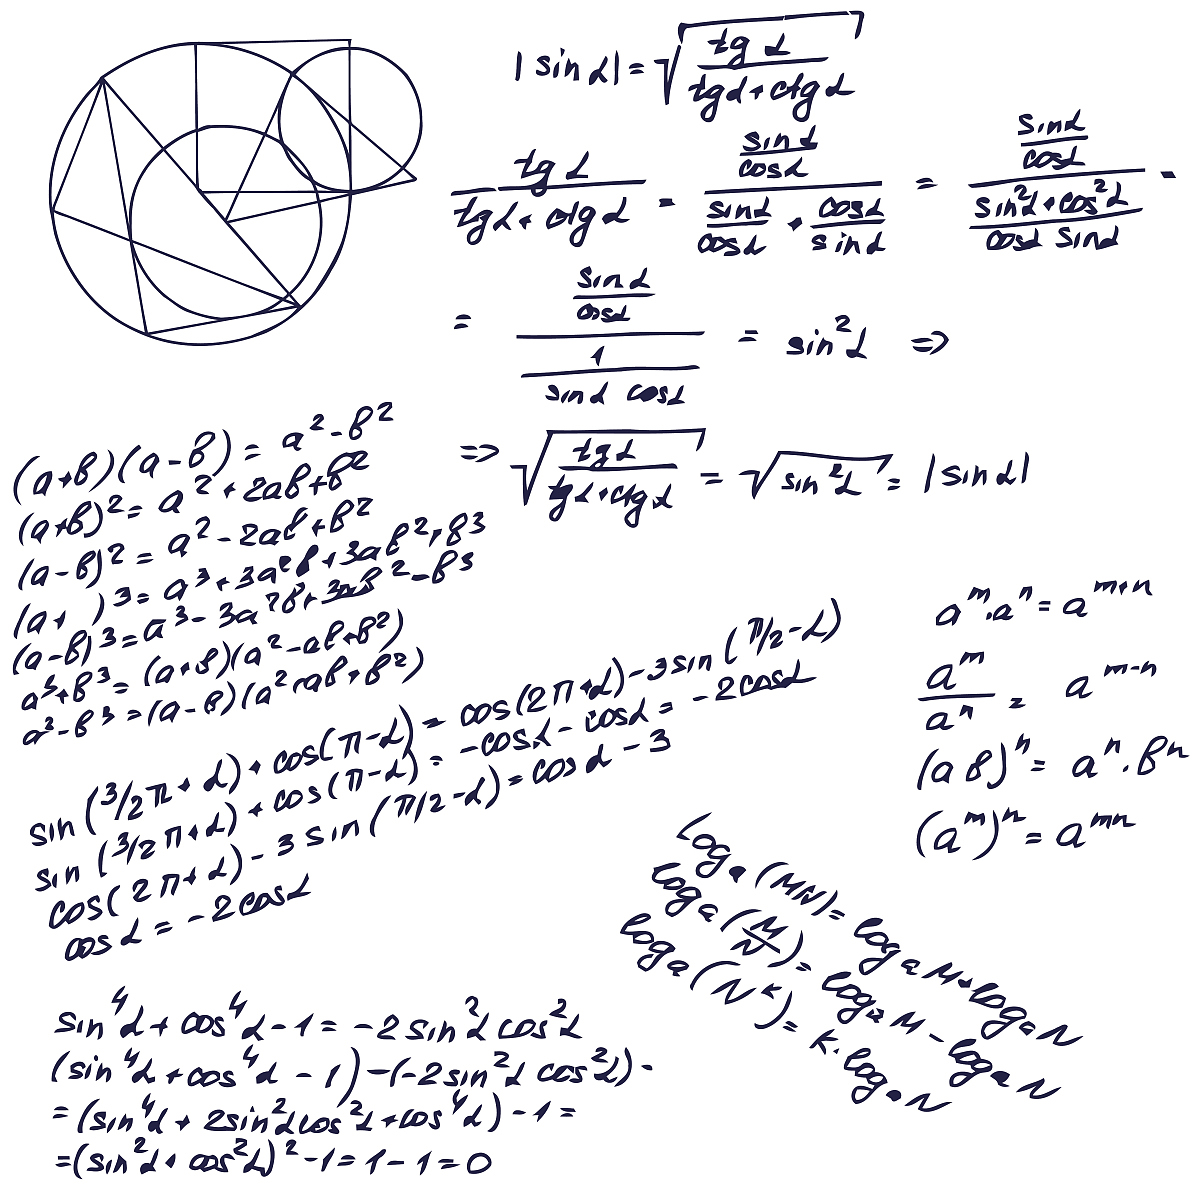 |sin α| = √(tg α / (tg α + ctg α))
tg α / (tg α + ctg α) = (sin α / cos α) / (sin α / cos α + cos α / sin α) = (sin α / cos α) / ((sin²α + cos²α) / (cos α sin α)) =
= (sin α / cos α) / (1 / (sin α cos α)) = sin²α =>
=> √(tg α / (tg α + ctg α)) = √(sin²α) = |sin α|
(a+b)(a-b) = a²-b²
(a+b)² = a²+2ab+b²
(a-b)² = a²-2ab+b²
(a+ )³ = a³+3a²b+3ab²+b³
(a-b)³ = a³-3a²b+3ab²-b³
a³+b³ = (a+b)(a²-ab+b²)
a³-b³ = (a-b)(a²+ab+b²)
sin(3/2π+α)+cos(π-α) = cos(2π+α)-3sin(π/2-α)
sin(3/2π+α)+cos(π-α) = -cosα-cosα = -2cosα
cos(2π+α)-3sin(π/2-α) = cosα-3
cosα = -2cosα
aᵐ·aⁿ = aᵐ⁺ⁿ
aᵐ / aⁿ = aᵐ⁻ⁿ
(ab)ⁿ = aⁿ·bⁿ
(aᵐ)ⁿ = aᵐⁿ
logₐ(MN) = logₐM+logₐN
logₐ(M/N) = logₐM-logₐN
logₐ(Nᵏ) = k·logₐN
sin⁴α+cos⁴α-1 = -2sin²α cos²α
(sin⁴α+cos⁴α-1)-(-2sin²α cos²α)-
=(sin⁴α+2sin²αcos²α+cos⁴α)-1=
=(sin²α+cos²α)²-1=1-1=0